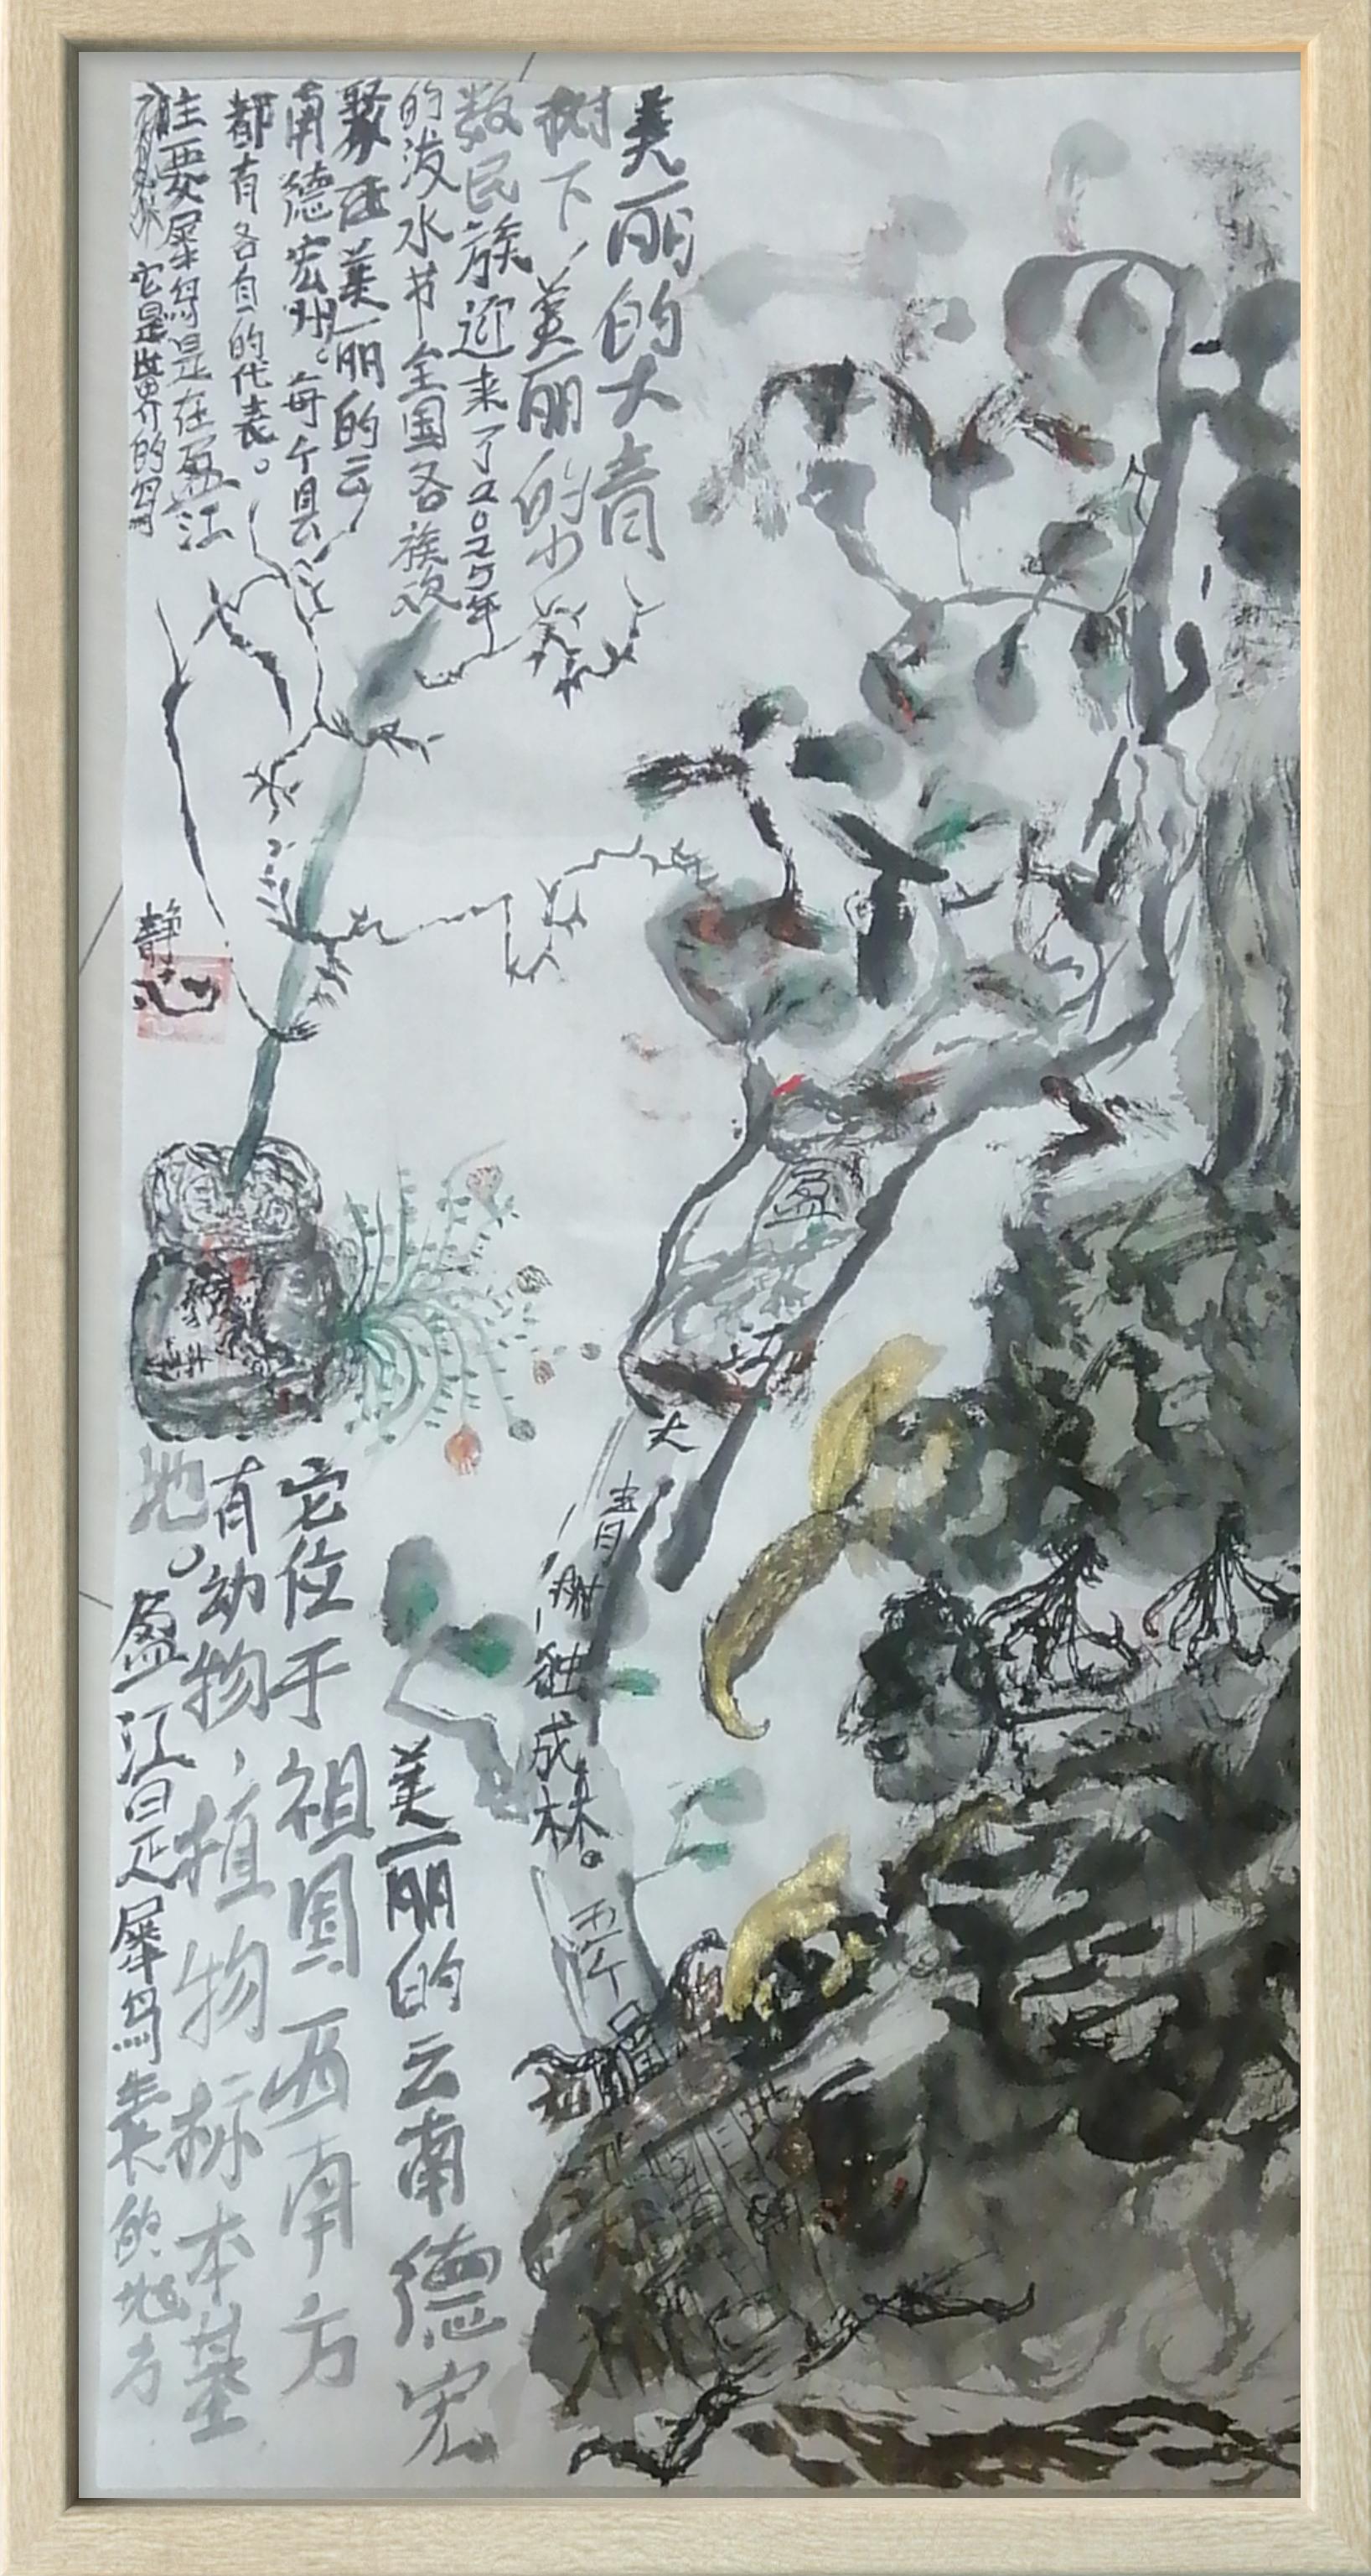 美丽的大青
树下，美丽的少
数民族迎来了2025年
的泼水节全国各族次
聚在美丽的云
南德宏州。每个县
都有各自的代表。
主要犀鸟是在盈江
它是世界的鸟
静心
盈
江
大
青树
独
成林。
西
美丽的云南德宏
它位于祖国西南方
有动物，植物标本基
地。盈江是犀鸟来的地方